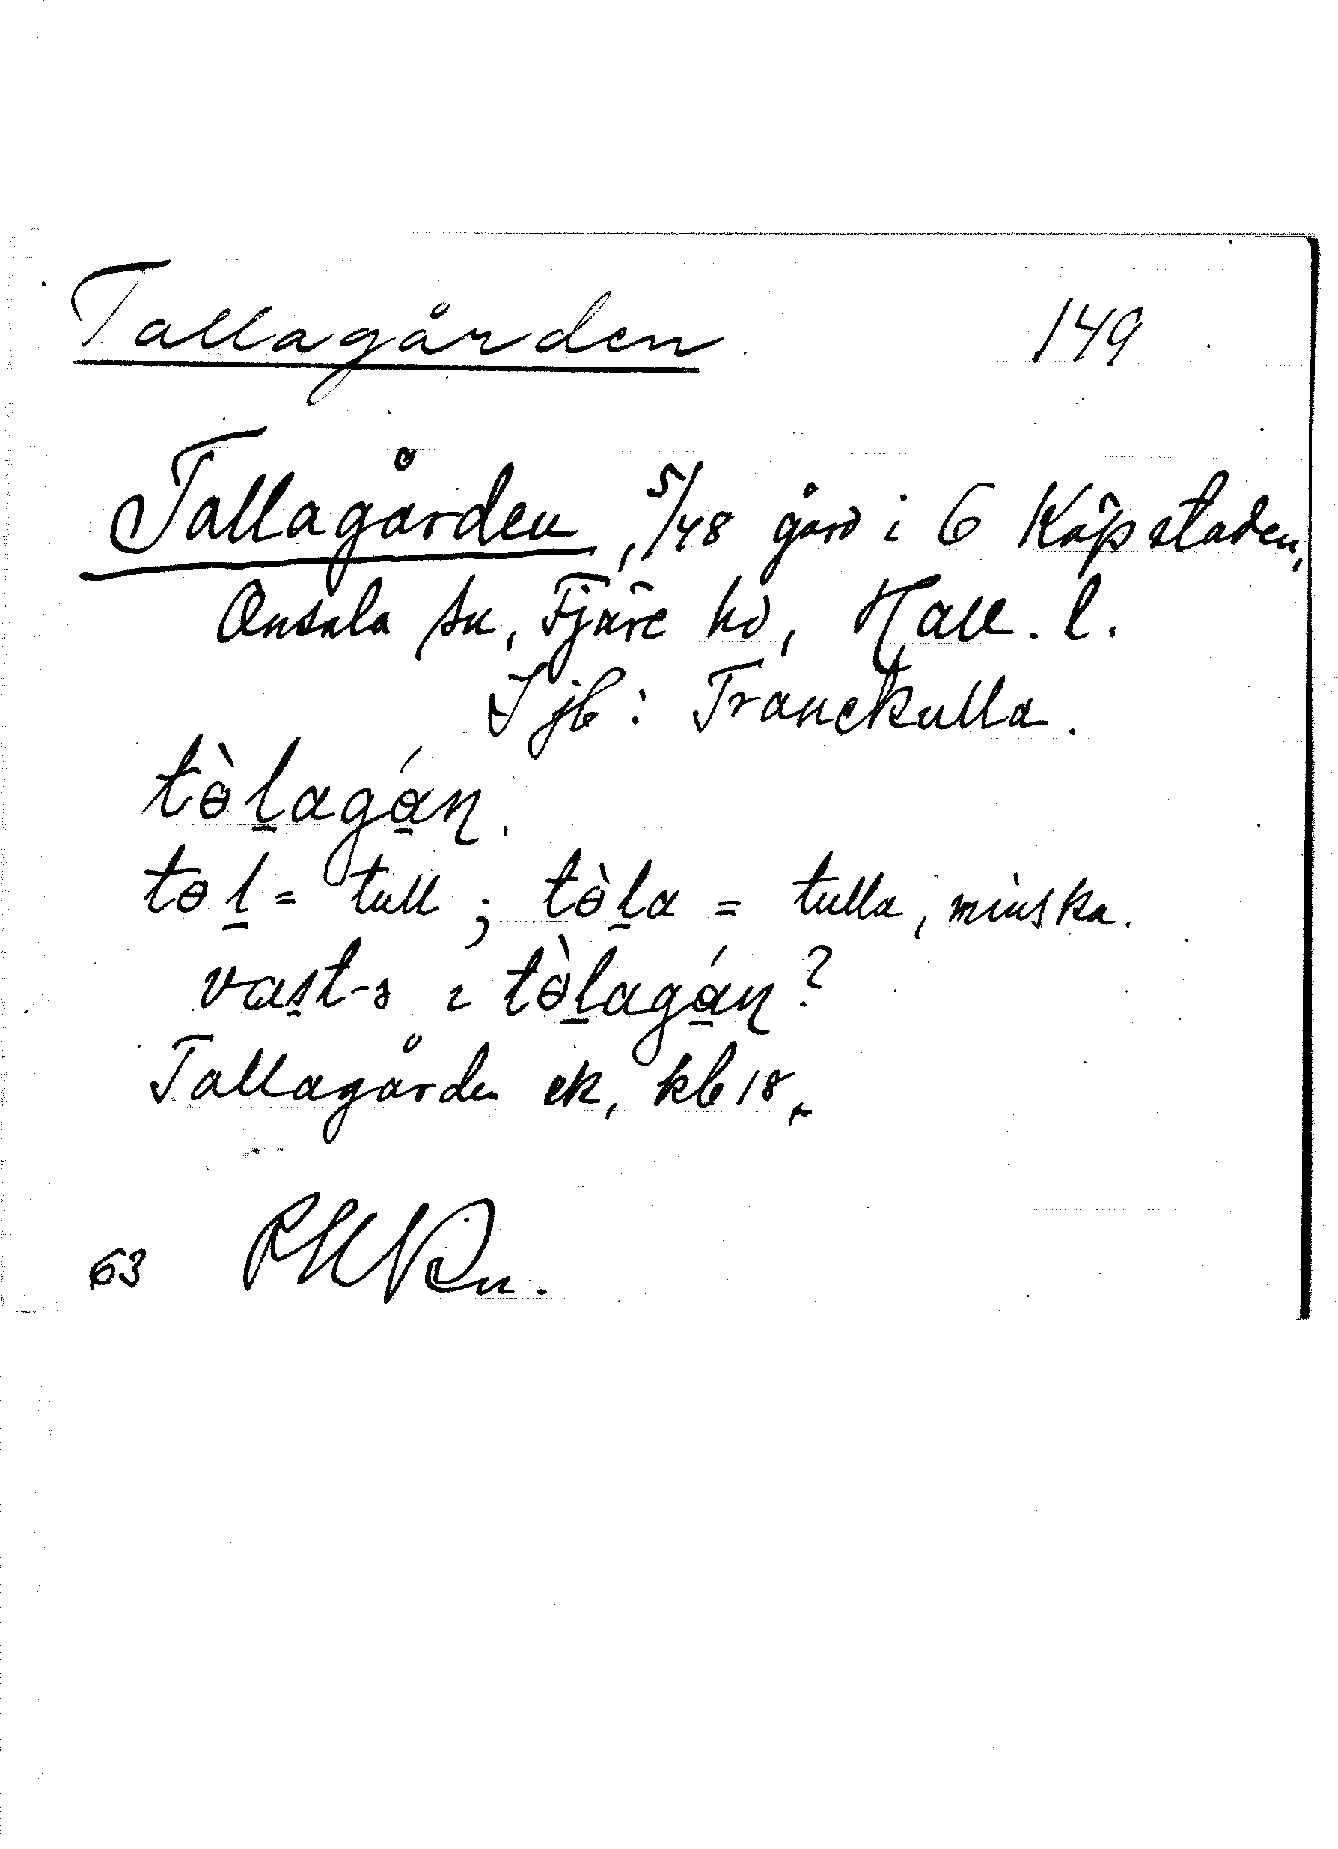 Tallagården 149
Tallagården, 5/48 gård i 6 Köpstaden,
Onsala sn, Fjäre hd, Hall. l.
I jb: Tranekulla.
tɵ̀l̠agán̠.
tɵl̠ = tull ; tɵ̀l̠a = tulla, minska.
vas̠t-s ɪ tɵ̀l̠agán̠?
Tallagården ek, kb 18
63